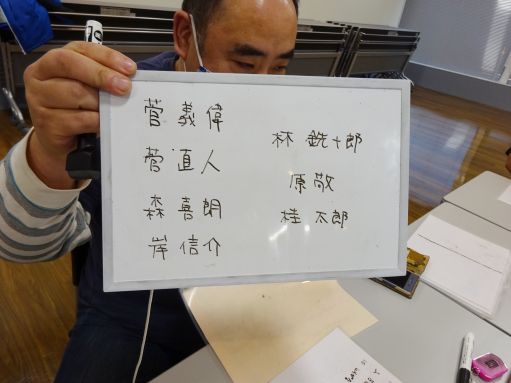 菅 義偉
菅 直人
森 喜朗
岸 信介
林 銑十郎
原 敬
桂 太郎